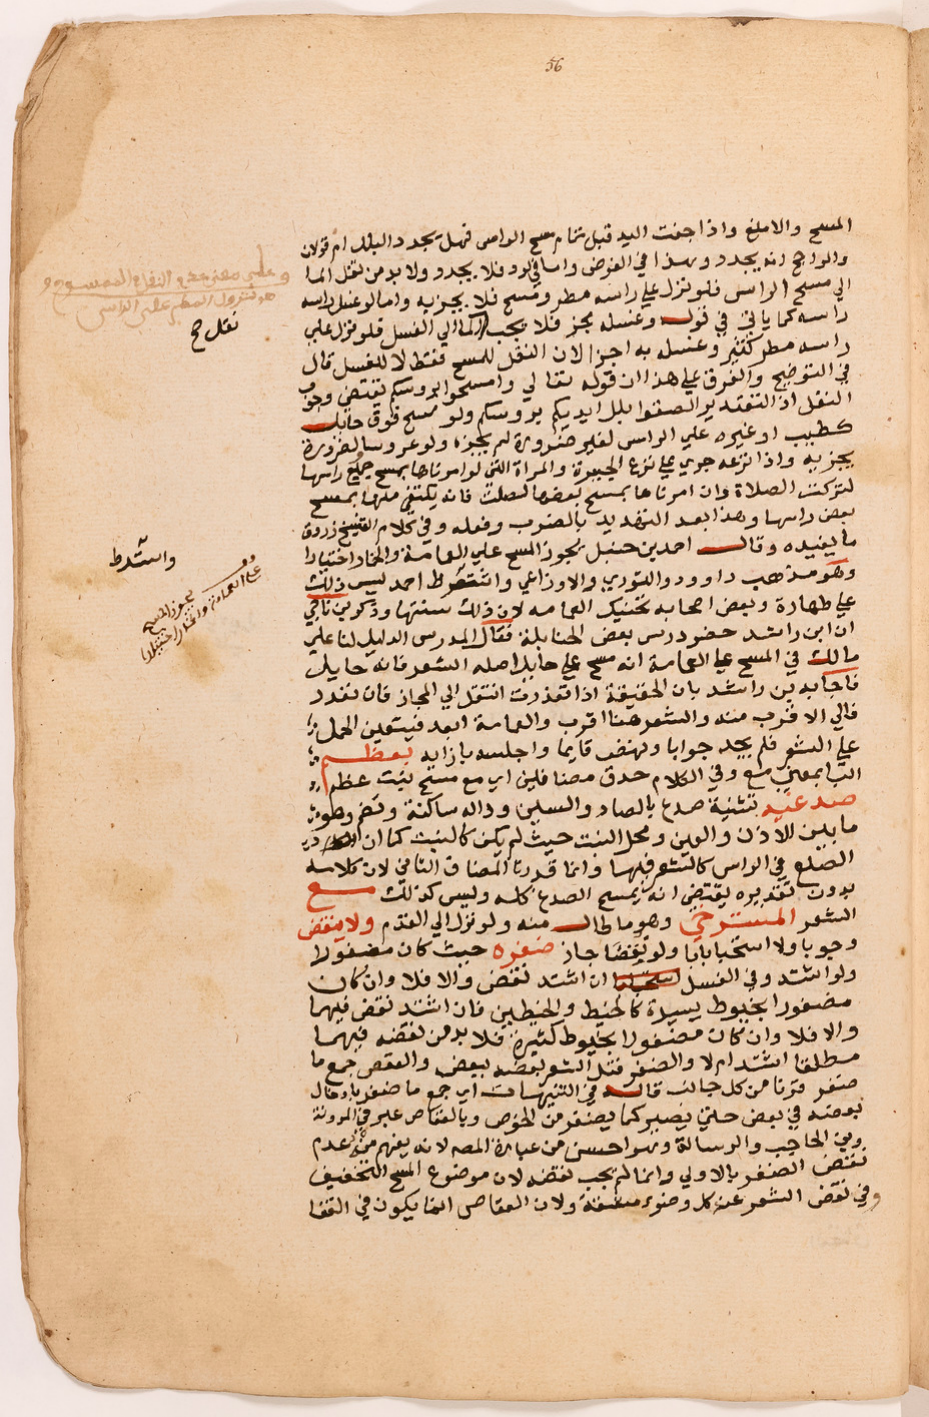 56
المسح والا ملغ واذا جفت اليد قبل تمام مسح الراس فهل يجدد البلل ام قولان
والراجح انه يجدد وهذا في الفرض واما في الرد فلا يجدد ولا بد من نقل الما
الي مسح الراس فلو نزل علي راسه مطر ومسح فلا يجزيه واما لو غسل راسه
راسه كما ياتي في قوله وغسله مجز فلا يجب الما الي الغسل فلو نزل علي
راسه مطر كثير وغسله به اجزا لان النقل للمسح فقط لا للغسل قال
في التوضيح والفرق علي هذا ان قوله تعالي وامسحوا بروسكم تقتضي وجوب
النقل اذ التقدير الصقوا بلل ايديكم بروسكم ولو مسح فوق حايل
كطيب او غيره علي الراس لغير ضرورة لم يجزه ولو عروسا لضرورة
يجزيه واذا نزعه جري علي نزع الجبيرة والمراة التي لو امرناها بمسح جميع راسها
لتركت الصلاة وان امرناها بمسح بعضها لصلت فانه يكتفي منها بمسح
بعض راسها وهذا بعد التهديد بالضرب وفعله وفي كلام الشيخ زروق
ما يفيده وقال احمد بن حنبل يجوز المسح علي العمامة والخمار اختيارا
وهو مذهب داوود والثوري والاوزاعي واشترط احمد لبس ذلك
علي طهارة وبعض اصحابه تحنيك العمامه لان ذلك سنتها وذكر ابن ناجي
ان ابن راشد حضر درس بعض الحنابلة فقال المدرس الدليل لنا علي
مالك في المسح علي العمامة انه مسح علي حايل اصله الشعر فانه حايل
فاجابه ابن راشد بان الحقيقة اذا تعذرت انتقل الي المجاز فان تعدد
فالي الاقرب منه والشعر هنا اقرب والعمامة ابعد فيتعين الحمل
علي الشعر فلم يجد جوابا ونهض قايما واجلسه بازايه بعظم
البا بمعني مع وفي الكلام حذف مضافين اي مع مسح نبت عظم
صدغيه تثنية صدغ بالصاد والسين وداله ساكنة وتضم وهو
ما بين الاذن والعين ومحل النبت حيث لم يكن كالنبت كما ان
الصلع في الراس كالشعر فيها وانما قدرنا المضاف الثاني لان كلامه
بدون تقديره يقتضي انه يمسح الصدغ كله وليس كذلك مع
الشعر المسترخي وهو ما طال منه ولو نزل الي القدم ولا ينقض
وجوبا ولا استحبابا ولو نقضا جاز ضفره حيث كان مضفورا
ولو اشتد وفي الغسل ان اشتد نقض والا فلا وان كان
مضفورا بخيوط يسيرة كالخيط والخيطين فان اشتد نقض فيهما
والا فلا وان كان مضفورا بخيوط كثيرة فلا بد من نقضه فيهما
مطلقا اشتد ام لا والضفر فتل الشعر بعضه ببعض والعقص جمع ما
ضفر قرنا من كل جانب قاله في التنبيهات اي جمع ما ضفر بادخال
بعضه في بعض حتي يصير كما يضفر من الخوص وبالعقاص عبر في المدونة
وبن الحاجب والرسالة وهو احسن من عبارة المصه لانه يفهم منه عدم
نقض الضفر بالاولي وانما لم يجب نقضه لان موضوع المسح التخفيف
وفي نقض الشعر عند كل وضوء مشقة ولان العقاص انما يكون في القفا
نقل ح
واشترط
يجوز المسح
علي العمامة والخمار اختيارا